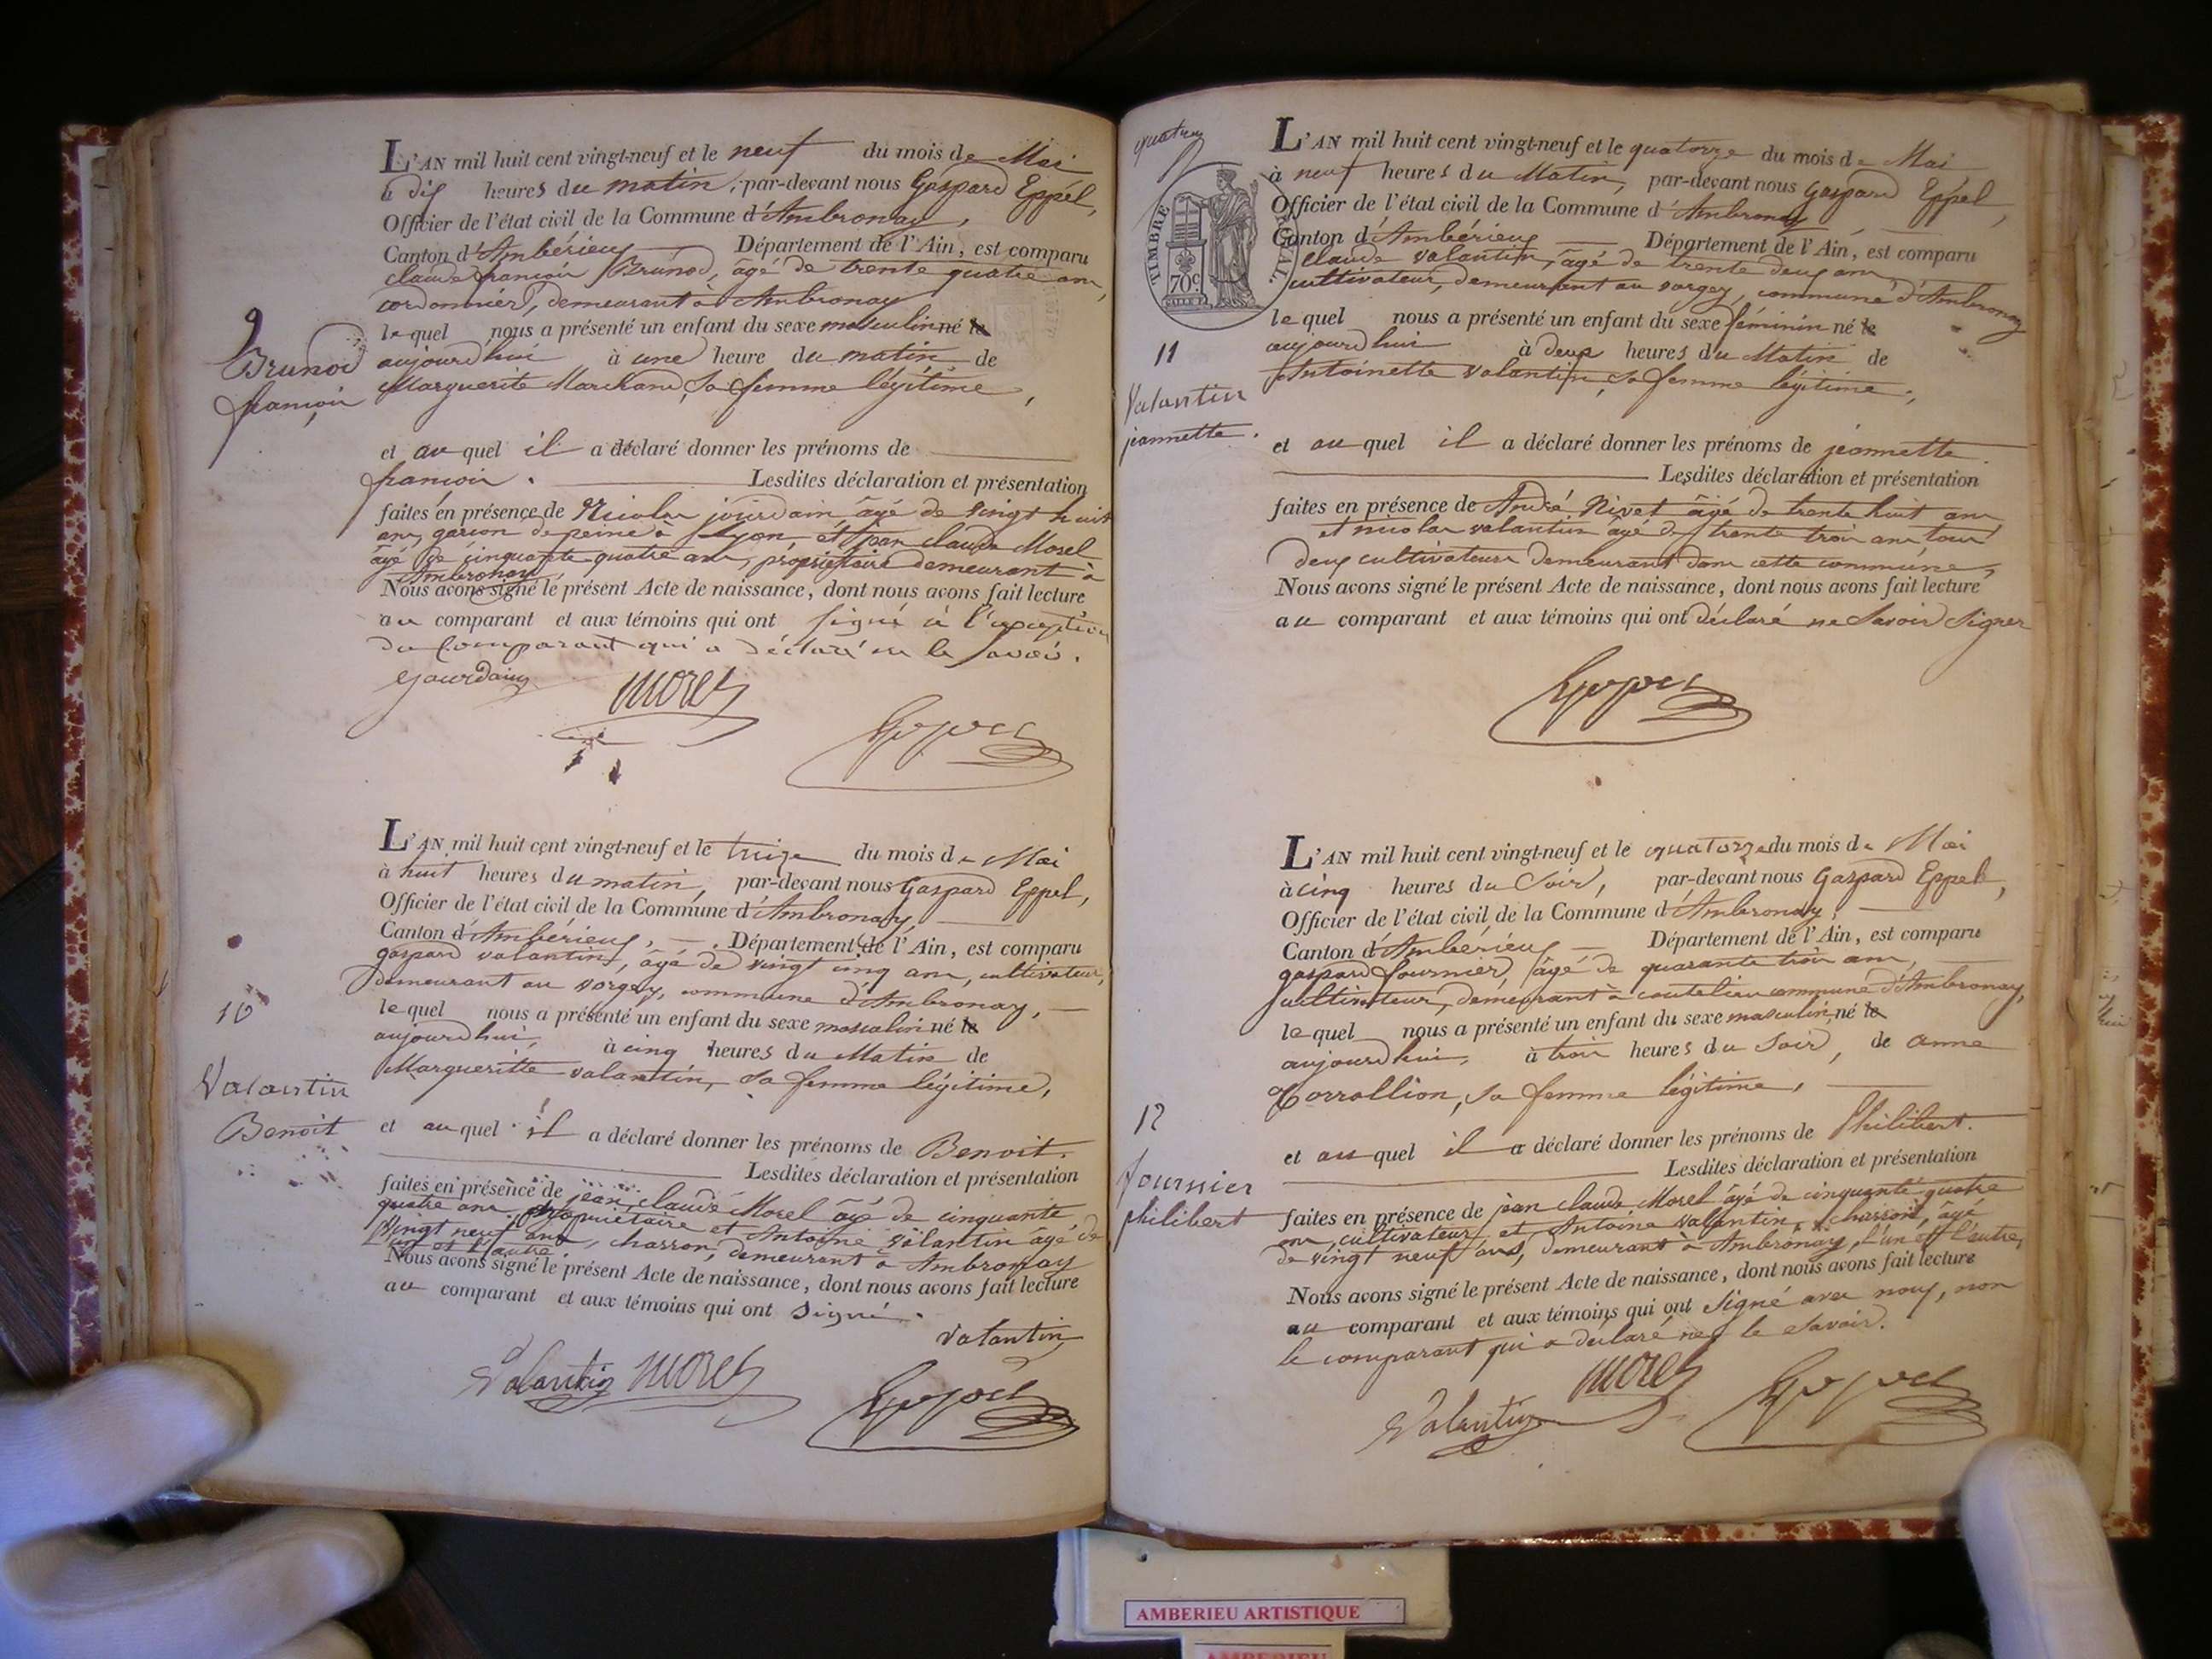 L'AN mil huit cent vingt-neuf et le neuf du mois de Mai
à dix heures du matin, par-devant nous Gaspard Eppel,
Officier de l'état civil de la Commune d'Ambronay,
Canton d'Ambérieux Département de l'Ain, est comparu
claude françois Brunod, âgé de trente quatre ans,
cordonnier, demeurant à Ambronay
lequel nous a présenté un enfant du sexe masculin né le
aujourd'hui à une heure du matin de
Marguerite Marchand, sa femme légitime,
9
Brunod
françois
et au quel il a déclaré donner les prénoms de
françois. Lesdites déclaration et présentation
faites en présence de Nicolas jourdain âgé de vingt huit
ans, garçon de peine à Lyon et jean claude Morel
âgé de cinquante quatre ans, propriétaire demeurant à
Ambronay
Nous avons signé le présent Acte de naissance, dont nous avons fait lecture
au comparant et aux témoins qui ont signé à l'exception
du comparant qui a déclaré ne le savoir.
Jourdain
Morel
Eppel
L'AN mil huit cent vingt-neuf et le treize du mois de Mai
à huit heures du matin, par-devant nous Gaspard Eppel,
Officier de l'état civil de la Commune d'Ambronay,
Canton d'Ambérieux, Département de l'Ain, est comparu
gaspard valantin, âgé de vingt cinq ans, cultivateur,
demeurant au vorgey, commune d'Ambronay,
lequel nous a présenté un enfant du sexe masculin né le
aujourd'hui, à cinq heures du Matin de
Margueritte valantin, sa femme légitime,
10
Valantin
Benoit
et auquel il a déclaré donner les prénoms de Benoit.
Lesdites déclaration et présentation
faites en présence de jean claude Morel âgé de cinquante
quatre ans propriétaire et Antoine valantin âgé de
vingt neuf ans, charron, demeurant à Ambronay
l'un et l'autre
Nous avons signé le présent Acte de naissance, dont nous avons fait lecture
au comparant et aux témoins qui ont signé.
valantin
Valantin Morel
Eppel
quatre
TIMBRE ROYAL
70c
L'AN mil huit cent vingt-neuf et le quatorze du mois de Mai
à neuf heures du Matin, par-devant nous Gaspard Eppel,
Officier de l'état civil de la Commune d'Ambronay
Canton d'Ambérieux Département de l'Ain, est comparu
claude valantin, âgé de trente deux ans
cultivateur, demeurant au vorgey, commune d'Ambronay
lequel nous a présenté un enfant du sexe féminin né le
aujourd'hui à deux heures du Matin de
Antoinette valantin, sa femme légitime,
11
Valantin
jeannette.
et au quel il a déclaré donner les prénoms de jeannette.
Lesdites déclaration et présentation
faites en présence de André Nivet âgé de trente huit ans
et nicolas valantin âgé de trente trois ans tous
deux cultivateurs demeurant dans cette commune,
Nous avons signé le présent Acte de naissance, dont nous avons fait lecture
au comparant et aux témoins qui ont déclaré ne savoir signer
Eppel
L'AN mil huit cent vingt-neuf et le quatorze du mois de Mai
à cinq heures du Soir, par-devant nous Gaspard Eppel,
Officier de l'état civil de la Commune d'Ambronay,
Canton d'Ambérieux Département de l'Ain, est comparu
gaspard fournier, âgé de quarante trois ans,
cultivateur, demeurant à coutelieu commune d'Ambronay,
lequel nous a présenté un enfant du sexe masculin, né le
aujourd'hui, à trois heures du Soir, de anne
sa femme légitime,
12
fournier
philibert
et au quel il a déclaré donner les prénoms de Philibert.
Lesdites déclaration et présentation
faites en présence de jean claude Morel âgé de cinquante quatre
ans, cultivateur et Antoine valantin, charron, âgé
de vingt neuf ans, demeurant à Ambronay, l'un et l'autre,
Nous avons signé le présent Acte de naissance, dont nous avons fait lecture
au comparant et aux témoins qui ont signé avec nous, non
le comparant qui a déclaré ne le savoir.
Valantin
Morel
Eppel
AMBERIEU ARTISTIQUE
AMBERIEU